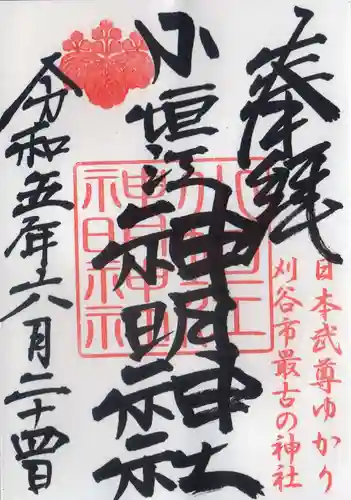 奉拝
日本武尊ゆかり
刈谷市最古の神社
小垣江神明神社
小垣江
神明神社
令和五年六月二十四日